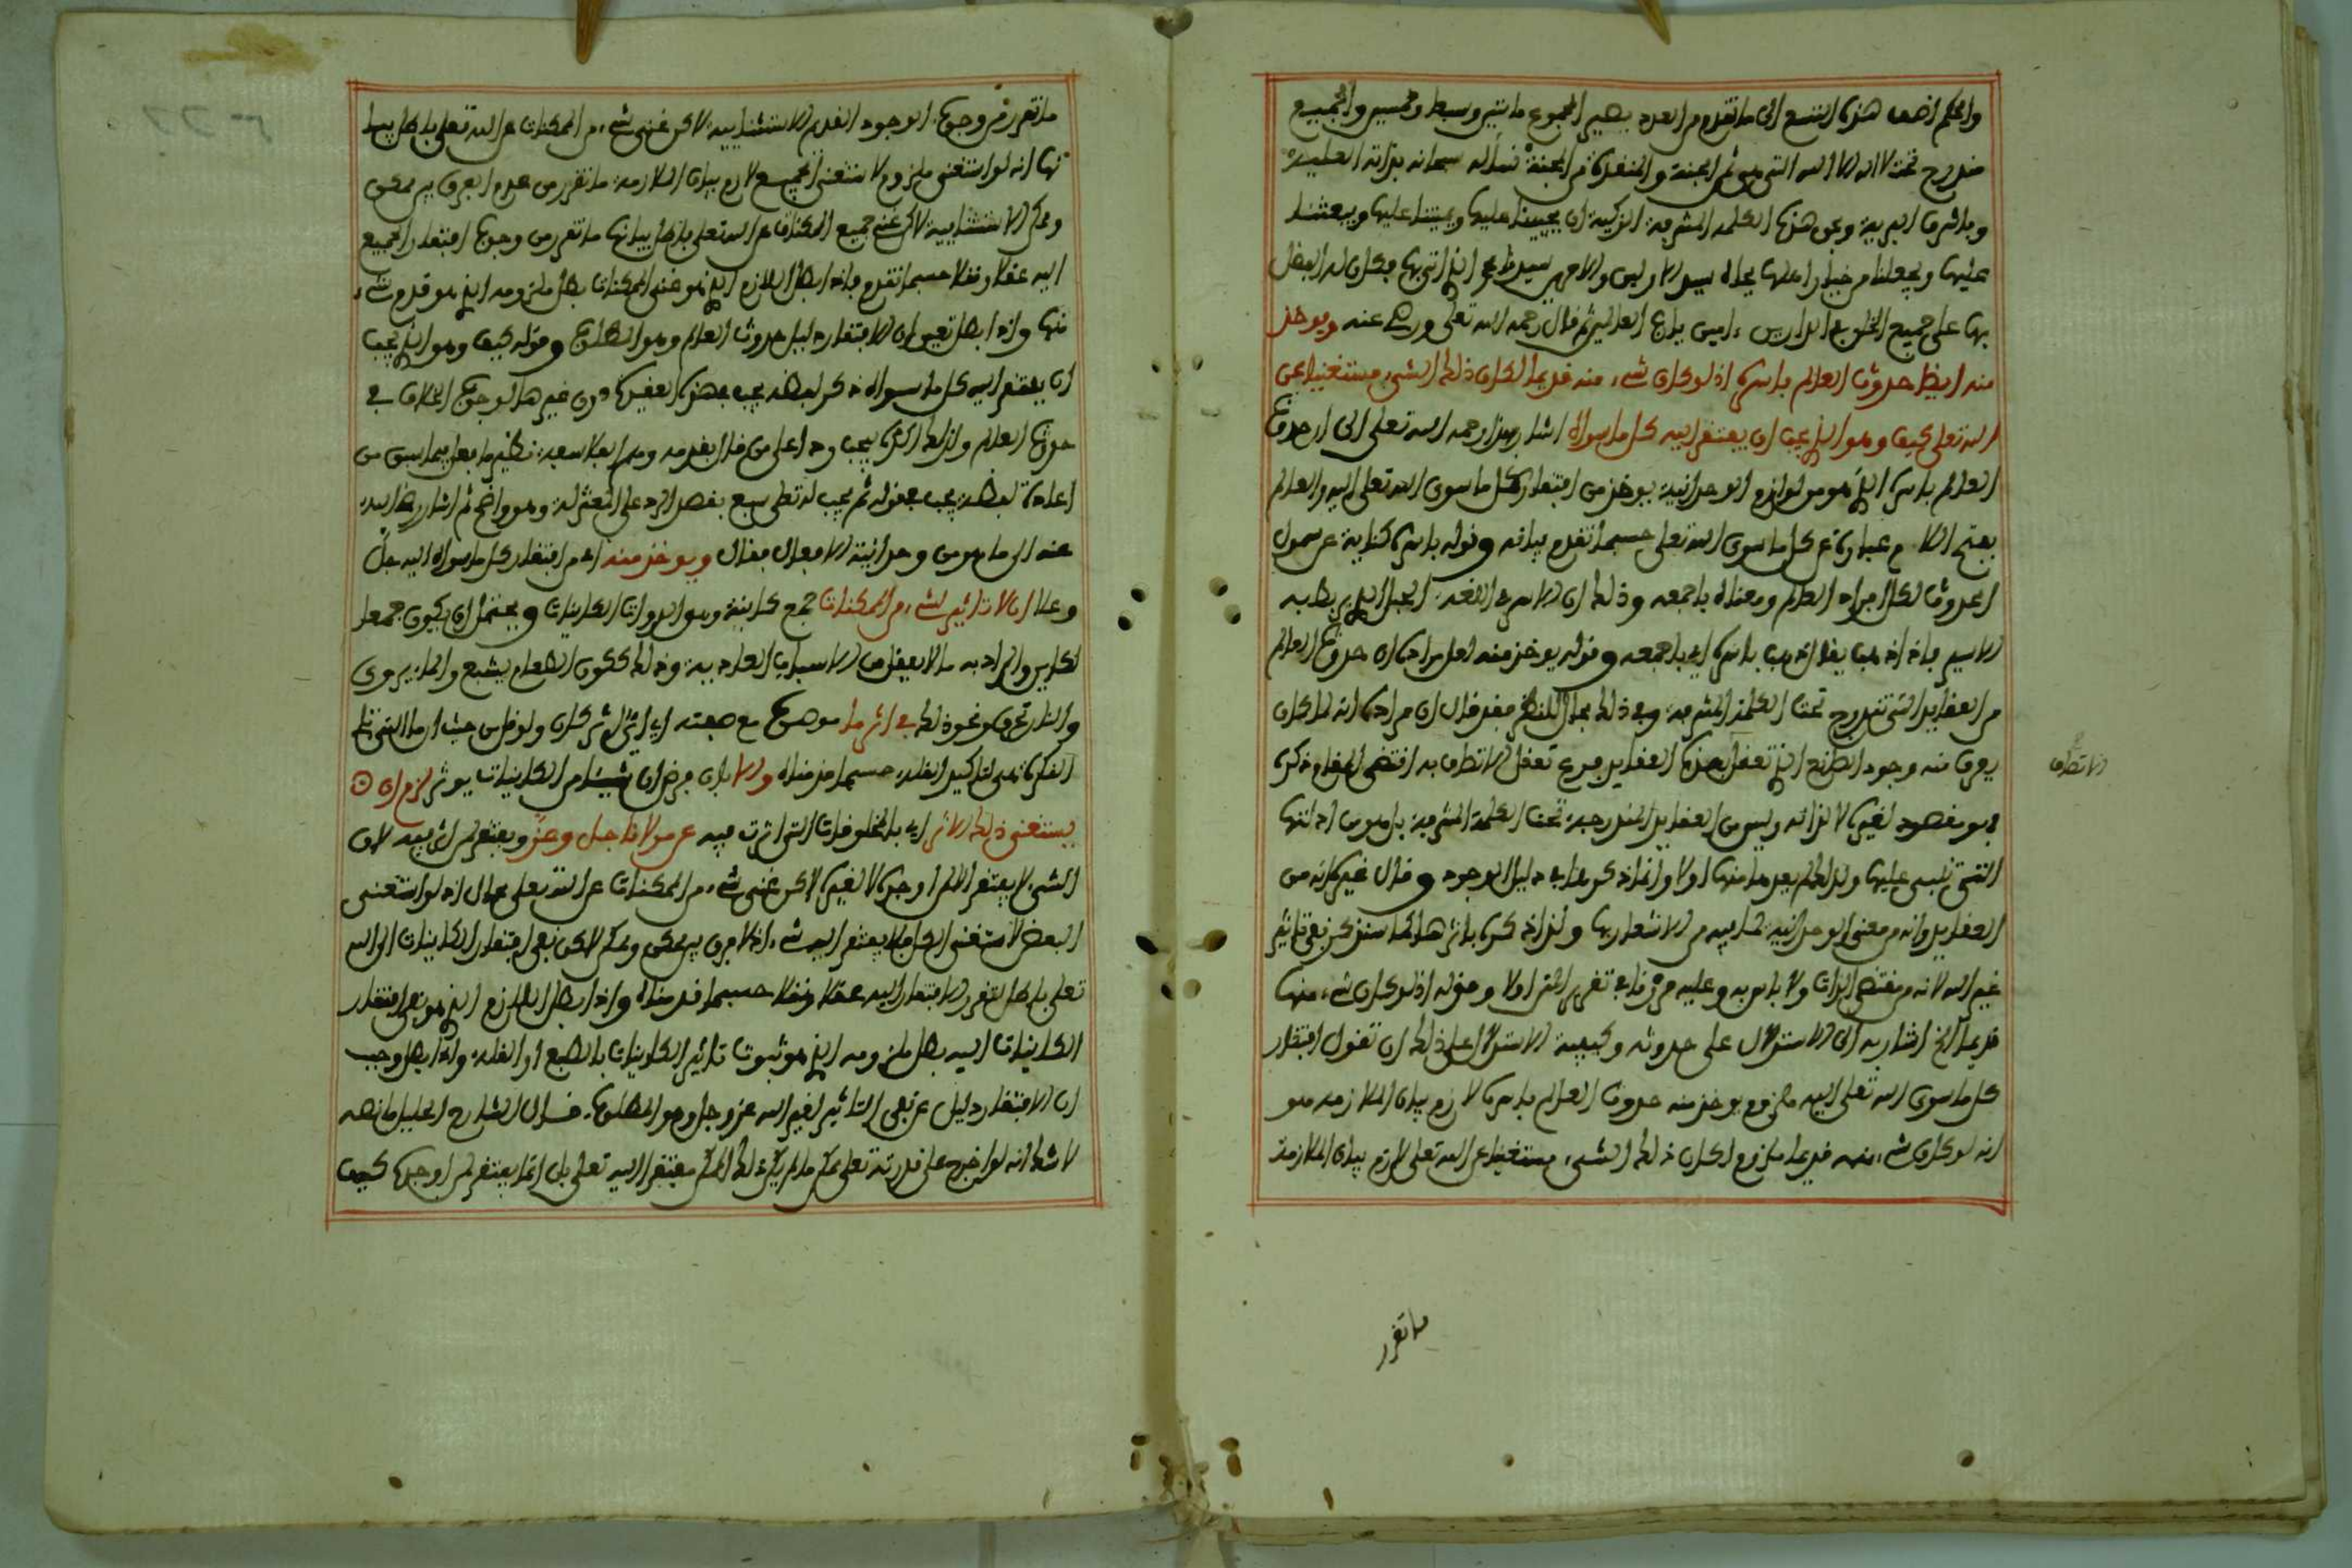 والحكم اضف هذه التسع الى ما تقدم من العدد يصير المجموع مايتين وسبعا وخمسين والجميع
مندرج تحت لا اله الا الله التي هي ثمن الجنة والمنقذة من الجنة نسأله سبحانه بذاته العلية
وباشرف البرية وبحق هذه الكلمة المشرفة الزكية ان يحيينا عليها ويميتنا عليها ويبعثنا
عليها ويجعلنا من خيار اهلها بجاه سيد الاولين والاخرين سيدنا محمد الذي اتى بها فكان له الفضل
بها على جميع الخلق في الدارين ءامين يا رب العالمين ثم قال رحمه الله تعلى ورضي عنه ويوخذ
منه ايضا حدوث العالم باسره اذ لو كان شيء منه قديما لكان ذلك الشيء مستغنيا عن
الله تعلى كيف وهو الذي يجب ان يفتقر اليه كل ما سواه اشار بهذا رحمه الله تعلى الى ان حدوث
العالم باسره الذي هو من لوازم الوحدانية يوخذ من افتقار كل ما سوى الله تعلى اليه والعالم
بفتح اللام عبارة عن كل ما سوى الله تعلى حسبما تقدم بيانه وقوله باسره كناية عن شمول
الحدوث لكل اجزاء العالم ومعناه باجمعه وذلك ان الاسر في اللغة الحبل الذي يربط به
الاسير فاذا ذهب يقال ذهب باسره اي باجمعه وقوله يوخذ منه لعل مراده ان حدوث العالم
من العقايد التي تندرج تحت الكلمة المشرفة وفي ذلك مجال للنظر فقد قال ان مراده انه لما كان
يعرف منه وجود الصانع الذي تعقل هذه العقايد فرع تعقل الاتصاف به اقتضى المقام ذكره
فهو مقصود لغيره لا لذاته وليس من العقايد المندرجة تحت الكلمة المشرفة بل هو من ادلتها
التي تنبني عليها ولذلك لم يعده منها اولا وانما ذكره في دليل الوجود وقال غيره انه من
العقايد وانه من معنى الوحدانية لما فيه من الاشعار بها ولذا ذكره باثرها كما سنذكر نفي تاثير
غير الله لانه من مقتضى الذات ولا باس به وعليه مررنا في تقرير المتن اولا وقوله اذ لو كان شيء منها
قديما الخ اشار به الى الاستدلال على حدوثه وكيفية الاستدلال على ذلك ان تقول افتقار
كل ما سوى الله تعلى اليه ملزوم يوخذ منه حدوث العالم باسره لازم بيان الملازمة هو
انه لو كان شيء منه قديما ملزوم لكان ذلك الشيء مستغنيا عن الله تعلى لازم بيان الملازمة
الاتصاف
ما تقرر
ما تقرر من وجوب الوجود القديم الاستثنايية لاكن غنى شيء من الممكنات عن الله تعلى باطل بيا
نها انه لو استغنى ملزوم لاستغنى الجميع لازم بيان الملازمة ما تقرر من عدم الفرق بين ممكن
وممكن الاستثنايية لاكن غنى جميع الممكنات عن الله تعلى باطل بيانها ما تقرر من وجوب افتقار الجميع
اليه عقلا ونقلا حسبما تقدم فاذا بطل اللازم الذي هو غنى الممكنات بطل ملزومه الذي هو قدم شيء
منها واذا بطل تعين ان الافتقار دليل حدوث العالم وهو المطلوب وقوله كيف وهو الذي يجب
ان يفتقر اليه كل ما سواه ذكر لفظة يجب في هذه العقيدة دون غيرها لوجوب الخلاف في
حدوث العالم ولذلك اكده بيجب ردا على من قال بقدمه وهم الفلاسفة نظير ما فعل فيما سبق من
اعادة لفظة يجب في قوله ثم يجب له تعلى سبع بقصد الرد على المعتزلة وهو واضح ثم اشار رضي الله
عنه الى ما هو من وحدانية الافعال فقال ويوخذ منه اي من افتقار كل ما سواه اليه جل
وعلا ان لا تاثير لشيء من الممكنات جمع كاينة وهو الذوات الكاينات ويحتمل ان يكون جمعا
لكاين والمراد به ما لا يعقل من الاسباب العادية وذلك ككون الطعام يشبع والماء يروي
والنار تحرق ونحو ذلك في اثر ما موصوف مع صفته اي اي اثر كان ولو قل من حيث ان ما التي تلي
النكرة تعين لتاكيد القلة حسبما قدمناه والا بان فرض ان شيئا من الكاينات يوثر لزم ان
يستغني ذلك الاثر اي بالمخلوقات التي اثرت فيه عن مولانا جل وعز ويفتقر لمن اثر فيه لان
الشيء لا يفتقر الا لمن اوجده لا لغيره لاكن غنى شيء من الممكنات عن الله تعلى محال اذ لو استغنى
البعض لاستغنى الكل فلا يفتقر اليه شيء اذ لا فرق بين ممكن وممكن لاكن نفي افتقار الكاينات الى الله
تعلى باطل لتقرر الافتقار اليه عقلا ونقلا حسبما قدمناه واذا بطل اللازم الذي هو نفي افتقار
الكاينات اليه بطل ملزومه الذي هو ثبوت تاثير الكاينات بالطبع او العلة واذا بطل وجب
ان الافتقار دليل عن نفي التاثير لغير الله عز وجل وهو المطلوب قال الشارح الجليل ما نصه
لا شك انه لو خرج على قدرته تعلى ممكن ما لم يكن ذلك الممكن مفتقرا اليه تعلى بل انما يفتقر لمن اوجده كيف